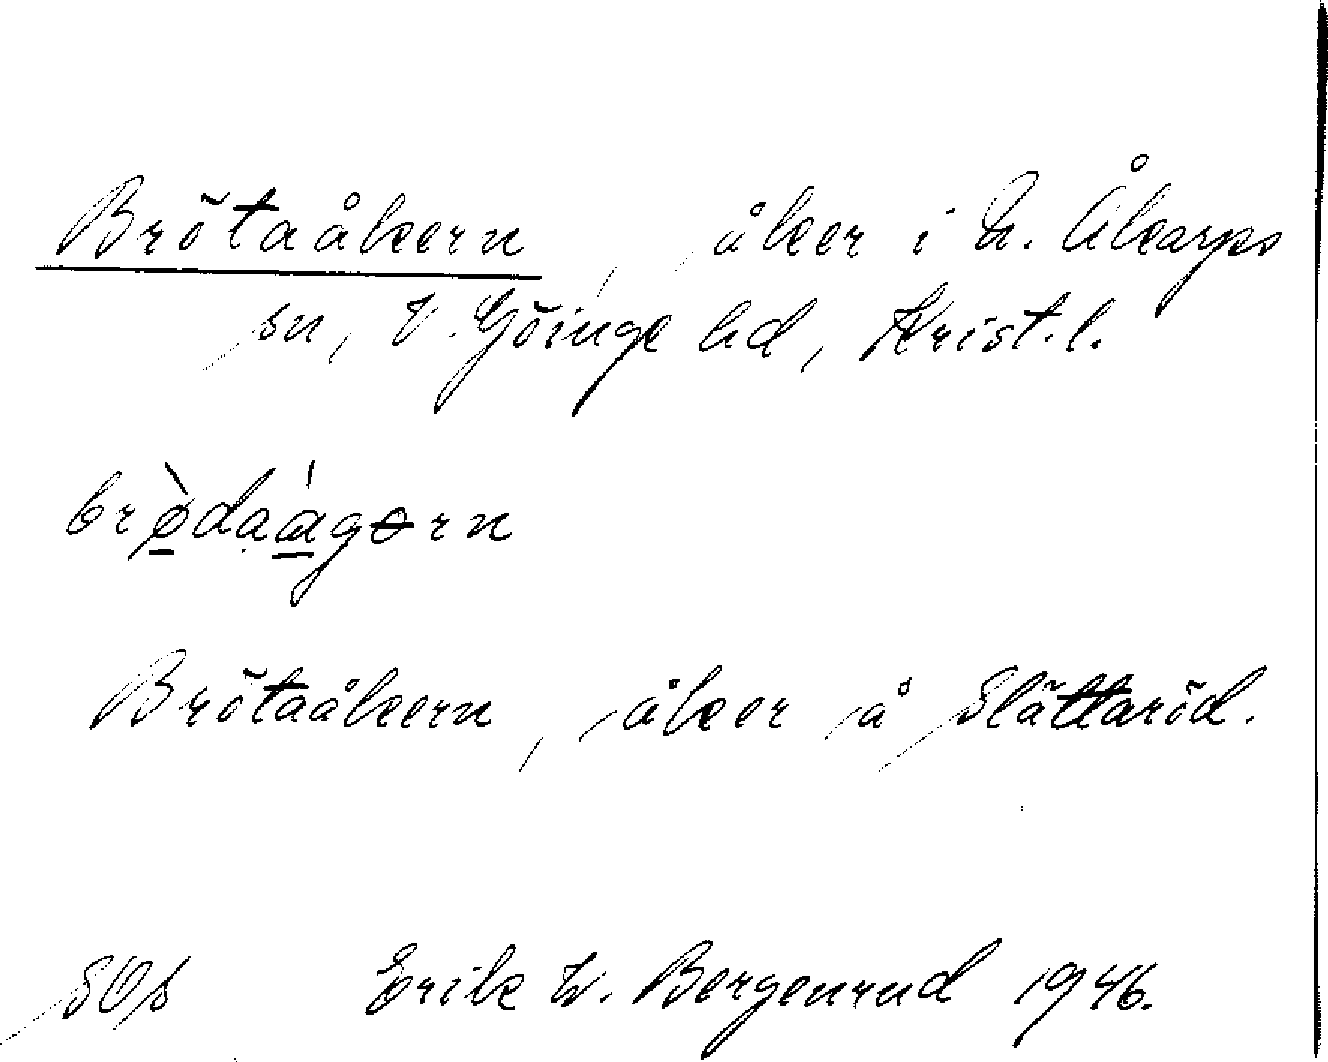 Brötaåkern, åker i N. Åkarps
sn, V. Göinge hd, Krist. l.
brø̀daág
Brötaåkern, åker å Slättaröd.
SOs Erik W. Bergenrud 1946.